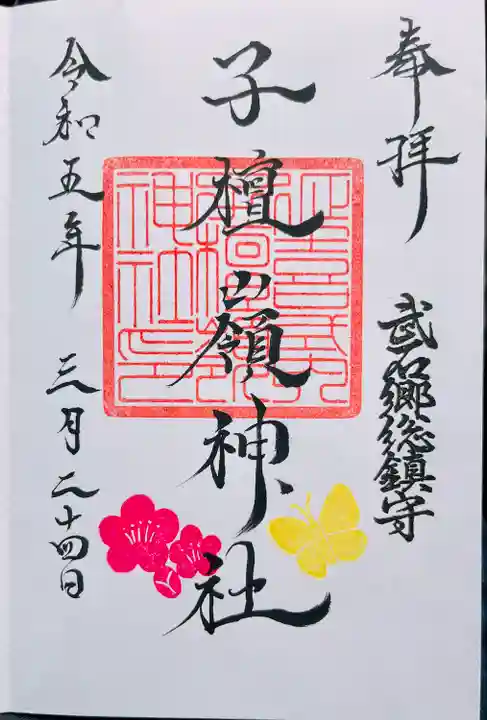 奉拝
武石郷総鎮守
子檀嶺神社
令和五年 三月二十四日